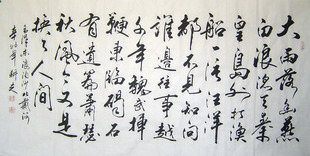 大雨落幽燕
白浪滔天秦
皇島外打漁
船一片汪洋
都不見知向
誰邊往事越
千年魏武揮
鞭東臨碣石
有遺篇蕭瑟
秋風今又是
換了人間
毛澤東浪淘沙北戴河